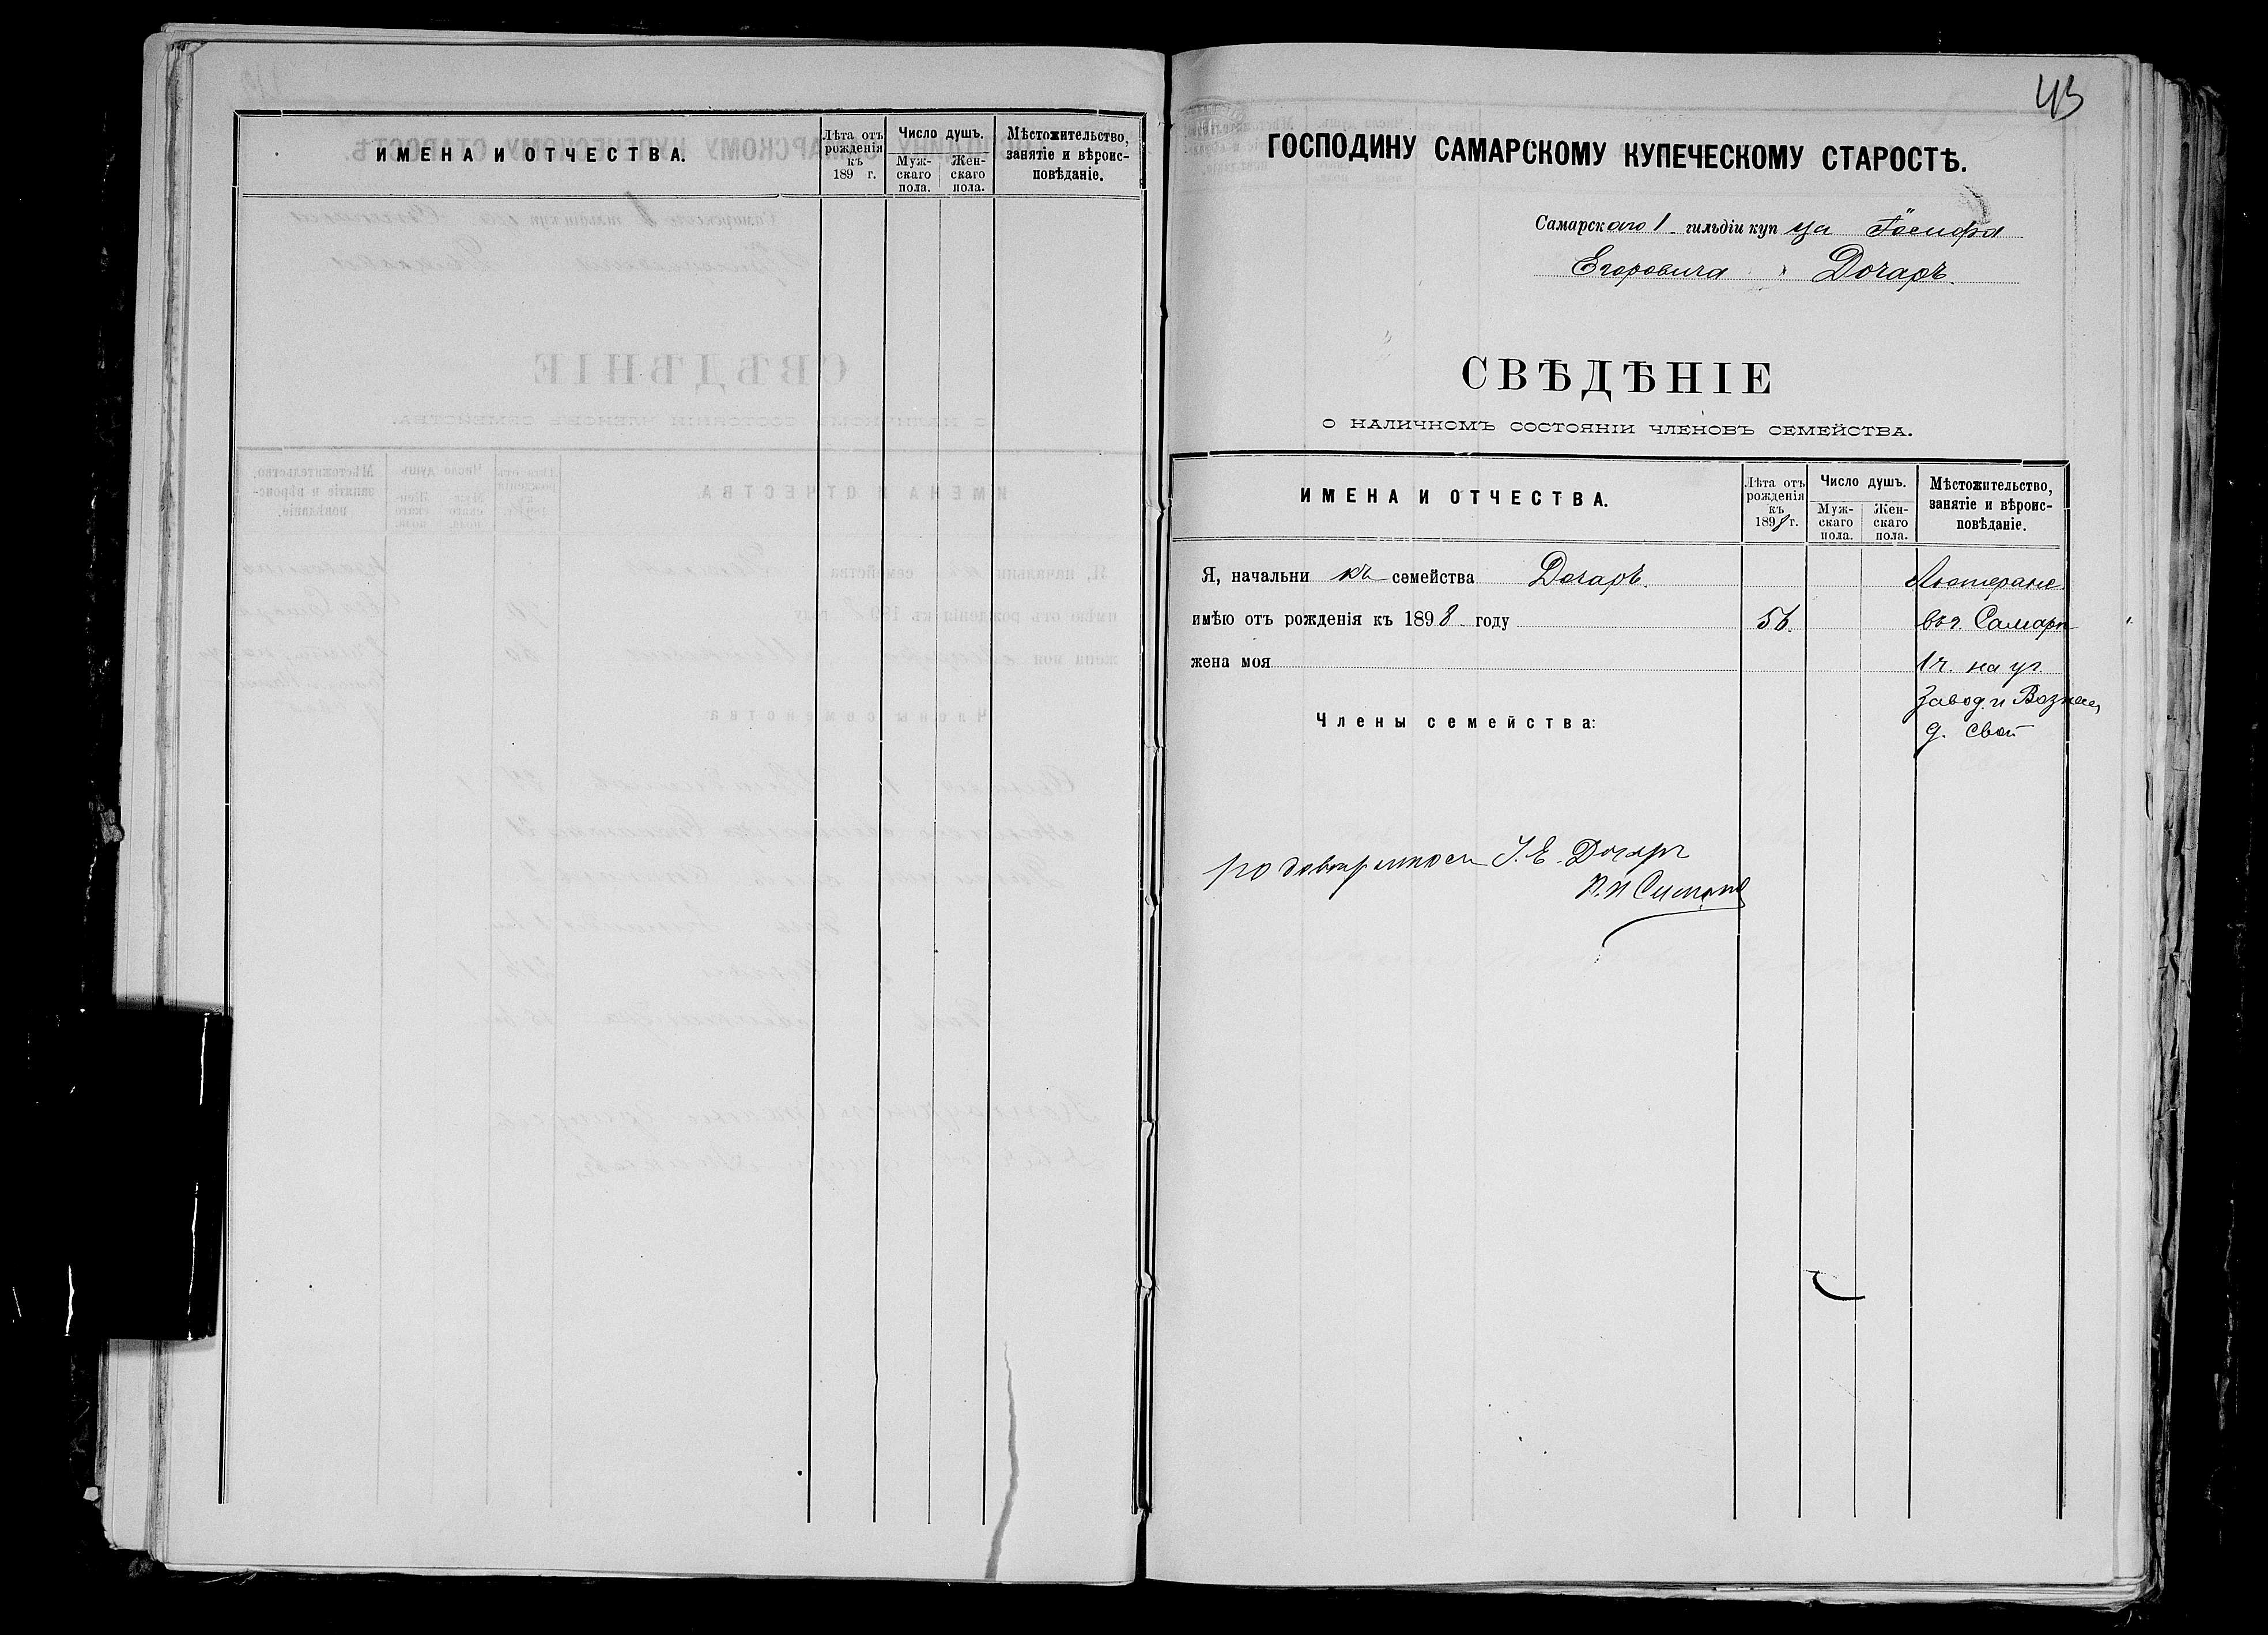 ИМЕНА И ОТЧЕСТВА.
Лѣта отъ рожденія къ 189 г.
Число душъ.
Муж-скаго пола.
Жен-скаго пола.
Мѣстожительство, занятіе и вѣроис-повѣданіе.
43
ГОСПОДИНУ САМАРСКОМУ КУПЕЧЕСКОМУ СТАРОСТѢ.
Самарскаго 1 гильдіи купца Іосифа
Егоровича Догаръ.
СВѢДѢНІЕ
О НАЛИЧНОМЪ СОСТОЯНІИ ЧЛЕНОВЪ СЕМЕЙСТВА.
ИМЕНА И ОТЧЕСТВА.
Лѣта отъ рожденія къ 1898 г.
Число душъ.
Муж-скаго пола.
Жен-скаго пола.
Мѣстожительство, занятіе и вѣроис-повѣданіе.
Я, начальникъ семейства Догаръ. Лютеранс.
имѣю отъ рожденія къ 1898 году 56. въ г. Самарѣ
жена моя 1 ч. на уг.
Завод. и Вознес.
Члены семейства: д. свой
по довѣренности І. Е. Догаръ